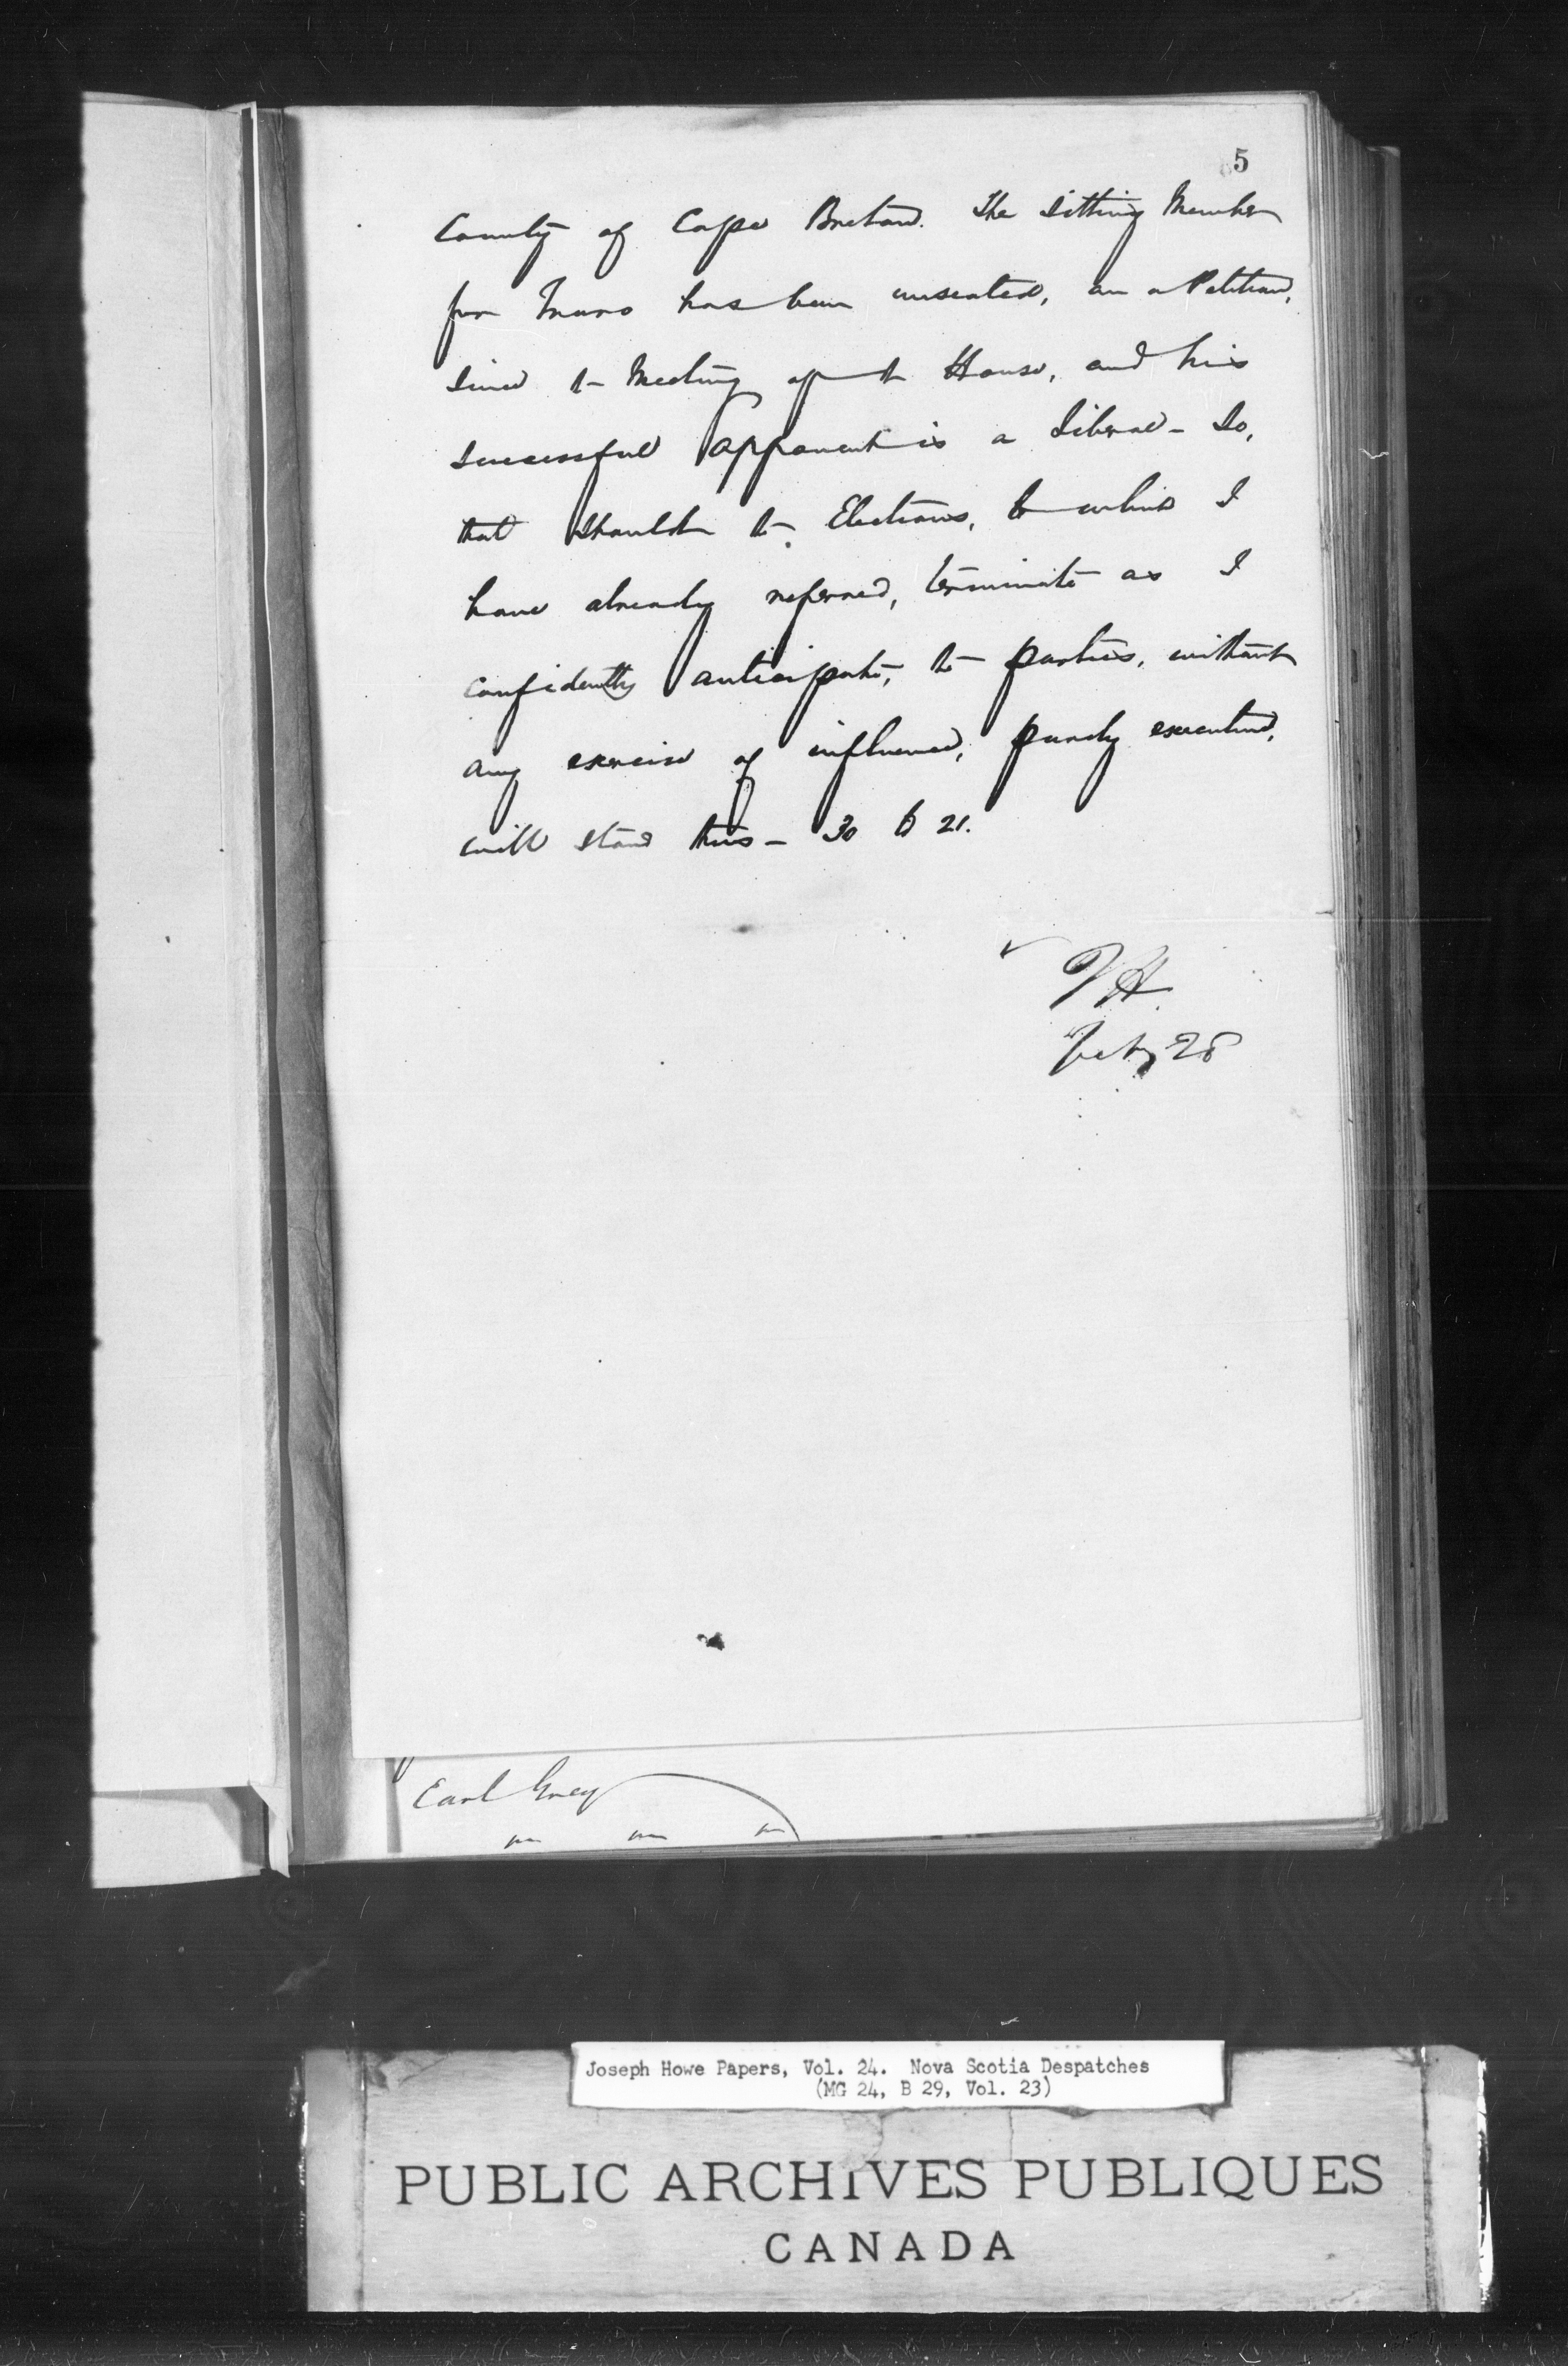 5
County of Cape Breton. The Sitting Member
for Truro has been unseated, on a Petition,
since the Meeting of the House, and his
successful opponent is a Liberal – So,
that should the Elections, to which I
have already referred, terminate as I
confidently anticipate, the parties, without
any exercise of influence, purely executive,
will stand thus – 30 to 21.
JH.
Feby 28
Earl Grey
Joseph Howe Papers, Vol. 24. Nova Scotia Despatches
(MG 24, B 29, Vol. 23)
PUBLIC ARCHIVES PUBLIQUES
CANADA